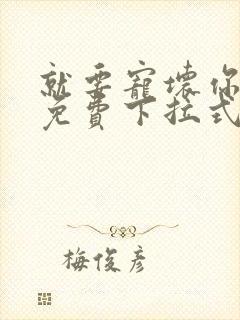 就要寵壞你
免費下拉式
梅俊彦